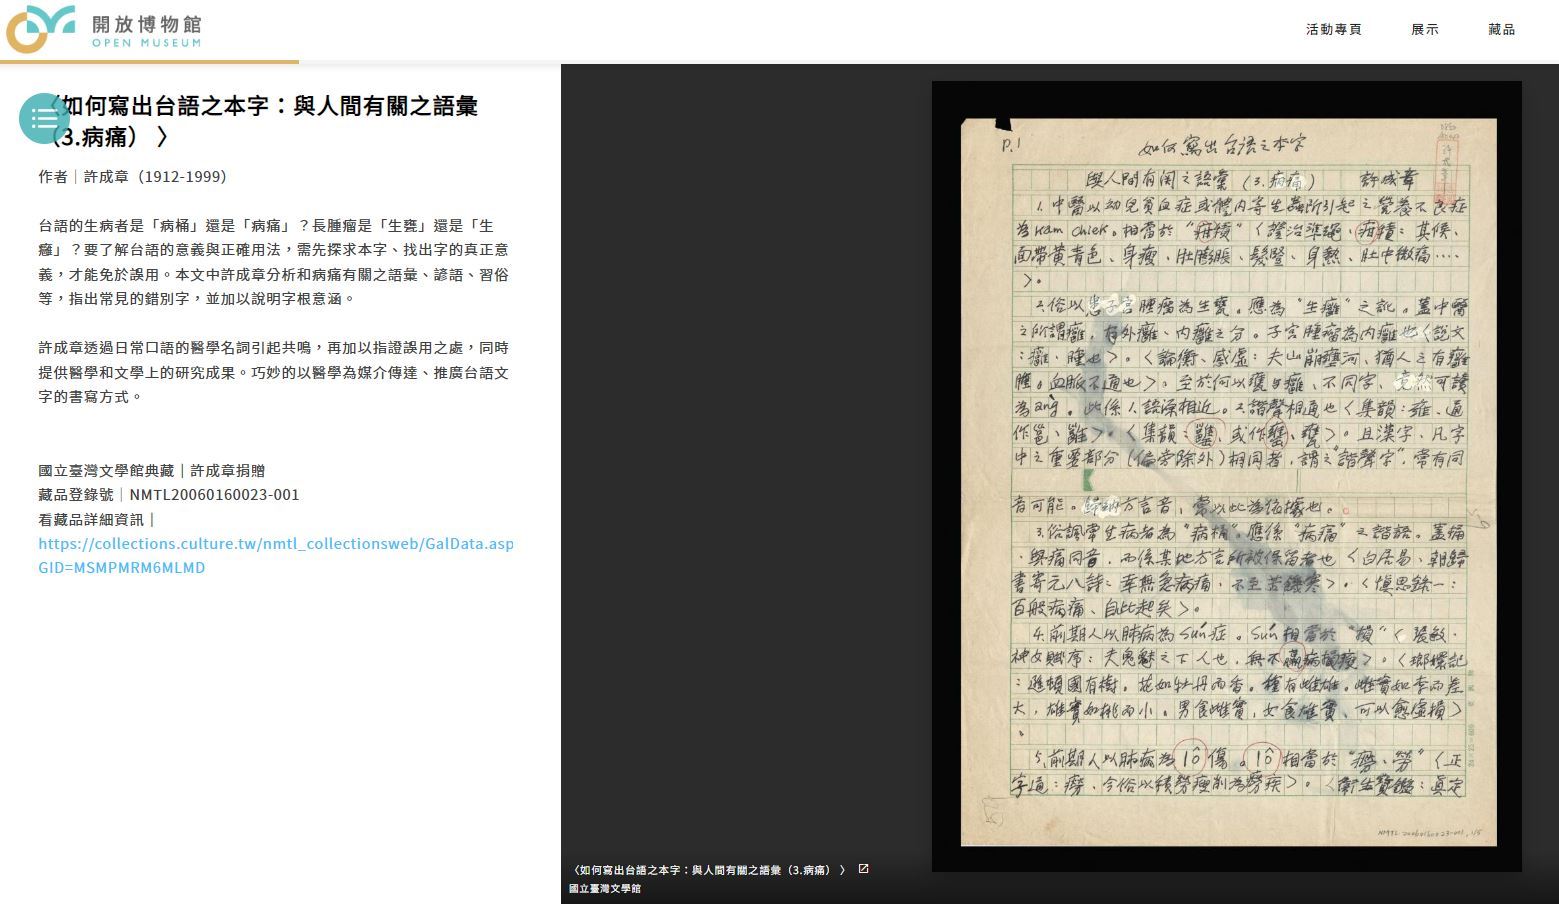 開放博物館
OPEN MUSEUM
活動專頁
展示
藏品
〈如何寫出台語之本字：與人間有關之語彙
（3.病痛） 〉
作者｜許成章（1912-1999）
台語的生病者是「病桶」還是「病痛」？長腫瘤是「生甕」還是「生
癰」？要了解台語的意義與正確用法，需先探求本字、找出字的真正意
義，才能免於誤用。本文中許成章分析和病痛有關之語彙、諺語、習俗
等，指出常見的錯別字，並加以說明字根意涵。
許成章透過日常口語的醫學名詞引起共鳴，再加以指證誤用之處，同時
提供醫學和文學上的研究成果。巧妙的以醫學為媒介傳達、推廣台語文
字的書寫方式。
國立臺灣文學館典藏｜許成章捐贈
藏品登錄號｜NMTL20060160023-001
看藏品詳細資訊｜
https://collections.culture.tw/nmtl_collectionsweb/GalData.asp
GID=MSMPMRM6MLMD
P.1
如何寫出台語之本字
與人間有関之語彙（3.病痛） 許成章
1.中醫以幼兒貧血症或體內寄生蟲所引起之營養不良症
為Kam chiek。相當於“疳積”〈證治準繩、疳積：其候、
面帶黃青色、身瘦、肚膨脹、髮豎、身熱、肚中微痛‥‥
〉。
2.俗以患子宮腫瘤為生甕。應為“生癰”之訛。蓋中醫
之所謂癰，有外癰、內癰之分。子宮腫瘤為內癰也〈說文
：癰、腫也〉。〈論衡、感虛：夫山崩壅河、猶人之有癰
腫。血脈不通也〉。至於何以甕與癰、不同字、竟能可讀
為ang。此係1.語源相近。2.諧聲相通也〈集韻：雍、通
作邕、雝〉。〈集韻：、或作、甕〉。且漢字、凡字
中之重要部分（偏旁除外）相同者，謂之“諧聲字”，常有同
音可能。歸納方言音，常以此為依據也。
3.俗謂常生病者為“病桶”。應係“病痛”之諧語。蓋桶
、與痛同音，而係某地方言所被保留者也〈白居易、朝歸
書寄元八詩：幸無急病痛、不至苦饑寒〉。〈慎思錄一：
百般病痛、自此起矣〉。
4.前期人以肺病為Sún症。Sún相當於“損”〈張敏、
神女賦序：夫鬼魅之下人也，無不羸病損瘦〉。〈瑯嬛記
：遜頓國有樹。花如牡丹而香。種有雌雄。雌實如李而差
大，雄實如桃而小。男食雌實，女食雄實、可以愈虛損〉
。
5.前期人以肺病為lô傷。lô相當於“癆、勞”〈正
字通：癆、今俗以積勞瘦削為勞疾〉。〈衛生寶鑑：真定
24×25=600
NMTL 20060160023-001, 1/5
〈如何寫出台語之本字：與人間有關之語彙（3.病痛） 〉
國立臺灣文學館